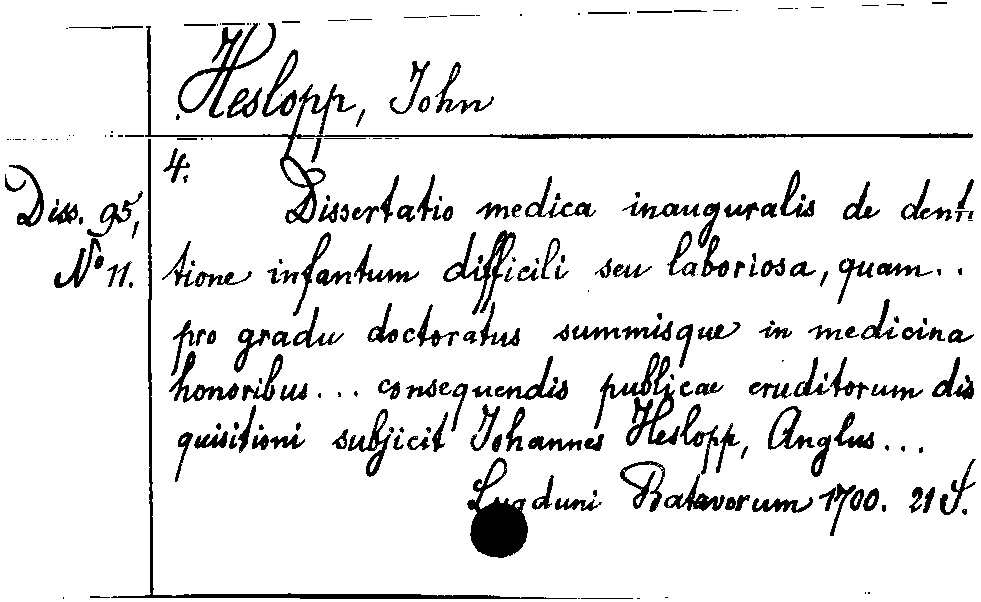 Heslopp, John
4.
Diss. 95,
No 11.
Dissertatio medica inauguralis de denti
tione infantum difficili seu laboriosa, quam..
pro gradu doctoratus summisque in medicina
honoribus... consequendis publicae eruditorum dis
quisitioni subjicit Johannes Heslopp, Anglus...
Lugduni Batavorum 1700. 21 S.